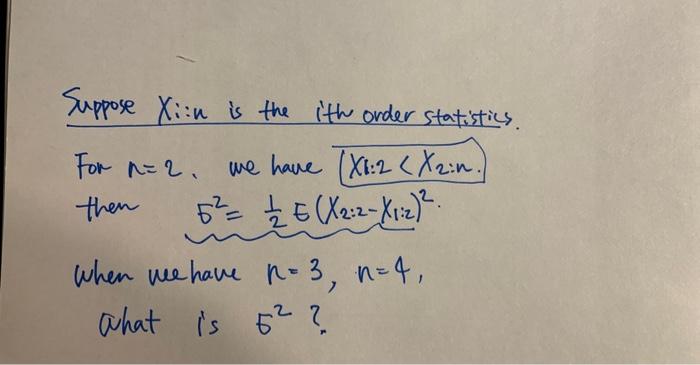 Suppose Xi:n is the ith order statistics.
For n=2, we have (X1:2 < X2:n.)
then σ² = 1/2 E(X2:2-X1:2)².
When we have n=3, n=4,
What is σ² ?